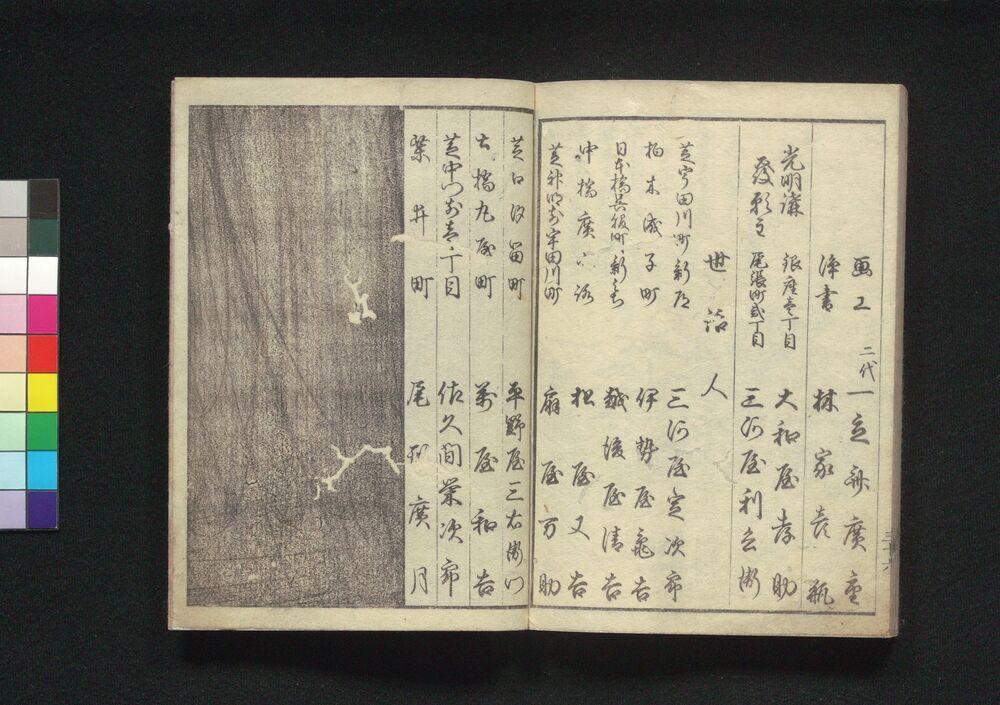 画工 二代一立斎廣重
浄書 林家喜瓶
光明講 銀座壱丁目 大和屋孝助
發願主 尾張町弐丁目 三河屋利兵衛
世話人
芝宇田川町新道 三河屋定次郎
柏木成子町 伊勢屋亀吉
日本橋呉服町新道 越後屋清吉
中橋廣小路 松屋又吉
芝神明前宇田川町 扇屋万助
芝口汐留町 平野屋三右衛門
古橋九屋町 萬屋和吉
芝中門前壱丁目 佐久間栄次郎
葉井町 尾 廣月
三十六